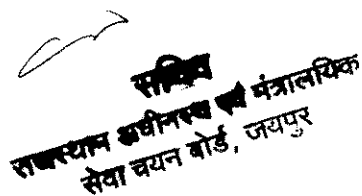 सचिव
राजस्थान अधीनस्थ एवं मंत्रालयिक
सेवा चयन बोर्ड, जयपुर